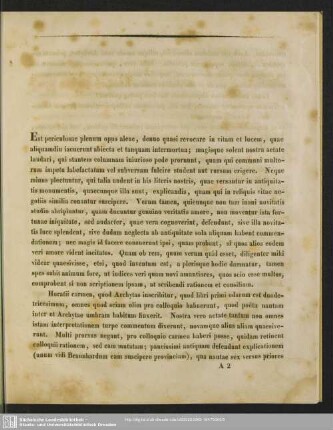 Est periculosae plenum opus aleae, denuo quasi revocare in vitam et lucem, quae
aliquamdiu iacuerunt abiecta et tanquam intermortua; magisque solent nostra aetate
laudari, qui stantem columnam iniurioso pede prorunt, quam qui communi multo-
rum impetu labefactatam vel subversam fulcire student aut rursum erigere. Neque
minus plectuntur, qui talia audent in his literis nostris, quae versantur in antiquita-
tis monumentis, quaecumque illa sunt, explicandis, quam qui in reliquis vitae ne-
gotiis similia conantur suscipere. Verum tamen, quicumque non tam inani novitatis
studio abripiuntur, quam ducuntur genuino veritatis amore, non moventur ista for-
tunae iniquitate, sed audacter, quae vera cognoverint, defendunt, sive illa novita-
tis luce splendent, sive dudum neglecta ab antiquitate sola aliquam habent commen-
dationem; nec magis id facere consueverunt ipsi, quam probant, si quos alios eodem
veri amore videant incitatos. Quam ob rem, quum verum quid esset, diligenter mihi
viderer quaesivisse, etsi, quod inventum est, a plerisque hodie damnatur, tamen
spes subit animum fore, ut iudices veri quum navi amantiores, quos scio esse multos,
comprobent si non scriptionem ipsam, at scribendi rationem et consilium.
Horatii carmen, quod Archytas inscribitur, quod libri primi odarum est duode-
tricesimum, omnes quod sciam olim pro colloquio habuerunt, quod poeta nautam
inter et Archytae umbram habitum finxerit. Nostra vero aetate tantum non omnes
istam interpretationem turpe commentum dixerunt, novamque alius aliam quaesive-
runt. Multi prorsus negant, pro colloquio carmen haberi posse, quidam retinent
colloquii rationem, sed eam mutatam; paucissimi antiquam defendunt explicationem
(unum vidi Braunhardum eam suscipere provinciam), qua nautae sex versus priores
A 2